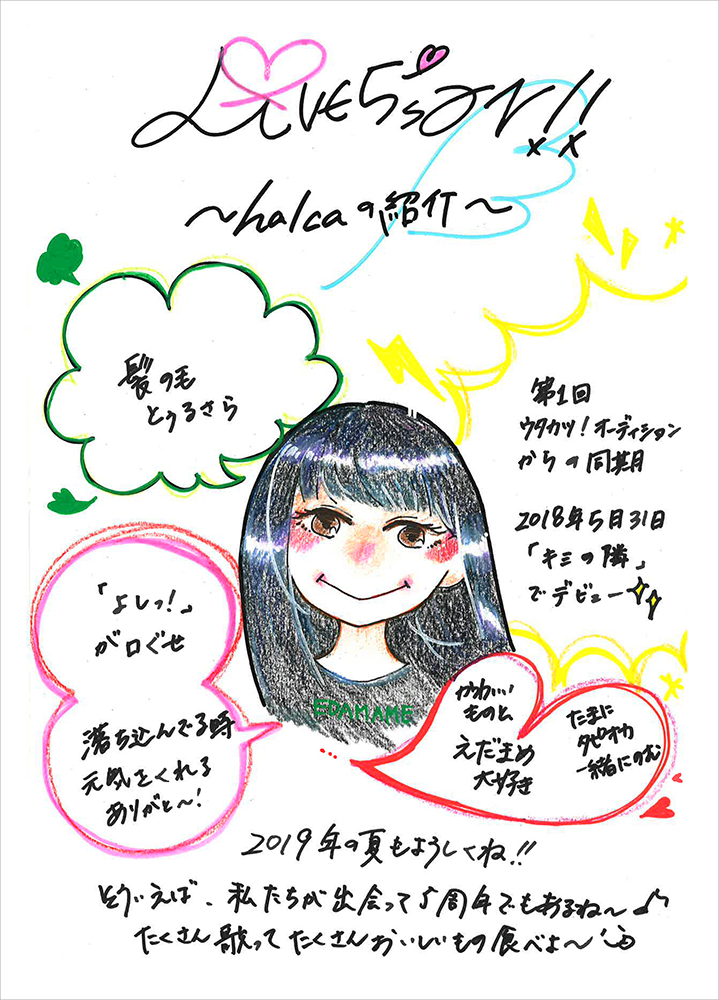 LiVE5'sON!!
〜halcaの紹介〜
髪の毛
とぅるさら
第1回
ウタカツ!オーディション
からの同期
2018年5月31日
「キミの隣」
でデビュー
「よしっ!」
が口ぐせ
落ち込んでる時
元気をくれる
ありがと〜!
EDAMAME
かわいい
ものと
えだまめ
大好き
たまに
タピオカ
一緒にのむ
2019年の夏もようしくね!!
そういえば、私たちが出会って5周年でもあるね〜♪
たくさん歌ってたくさんおいしいもの食べよ〜